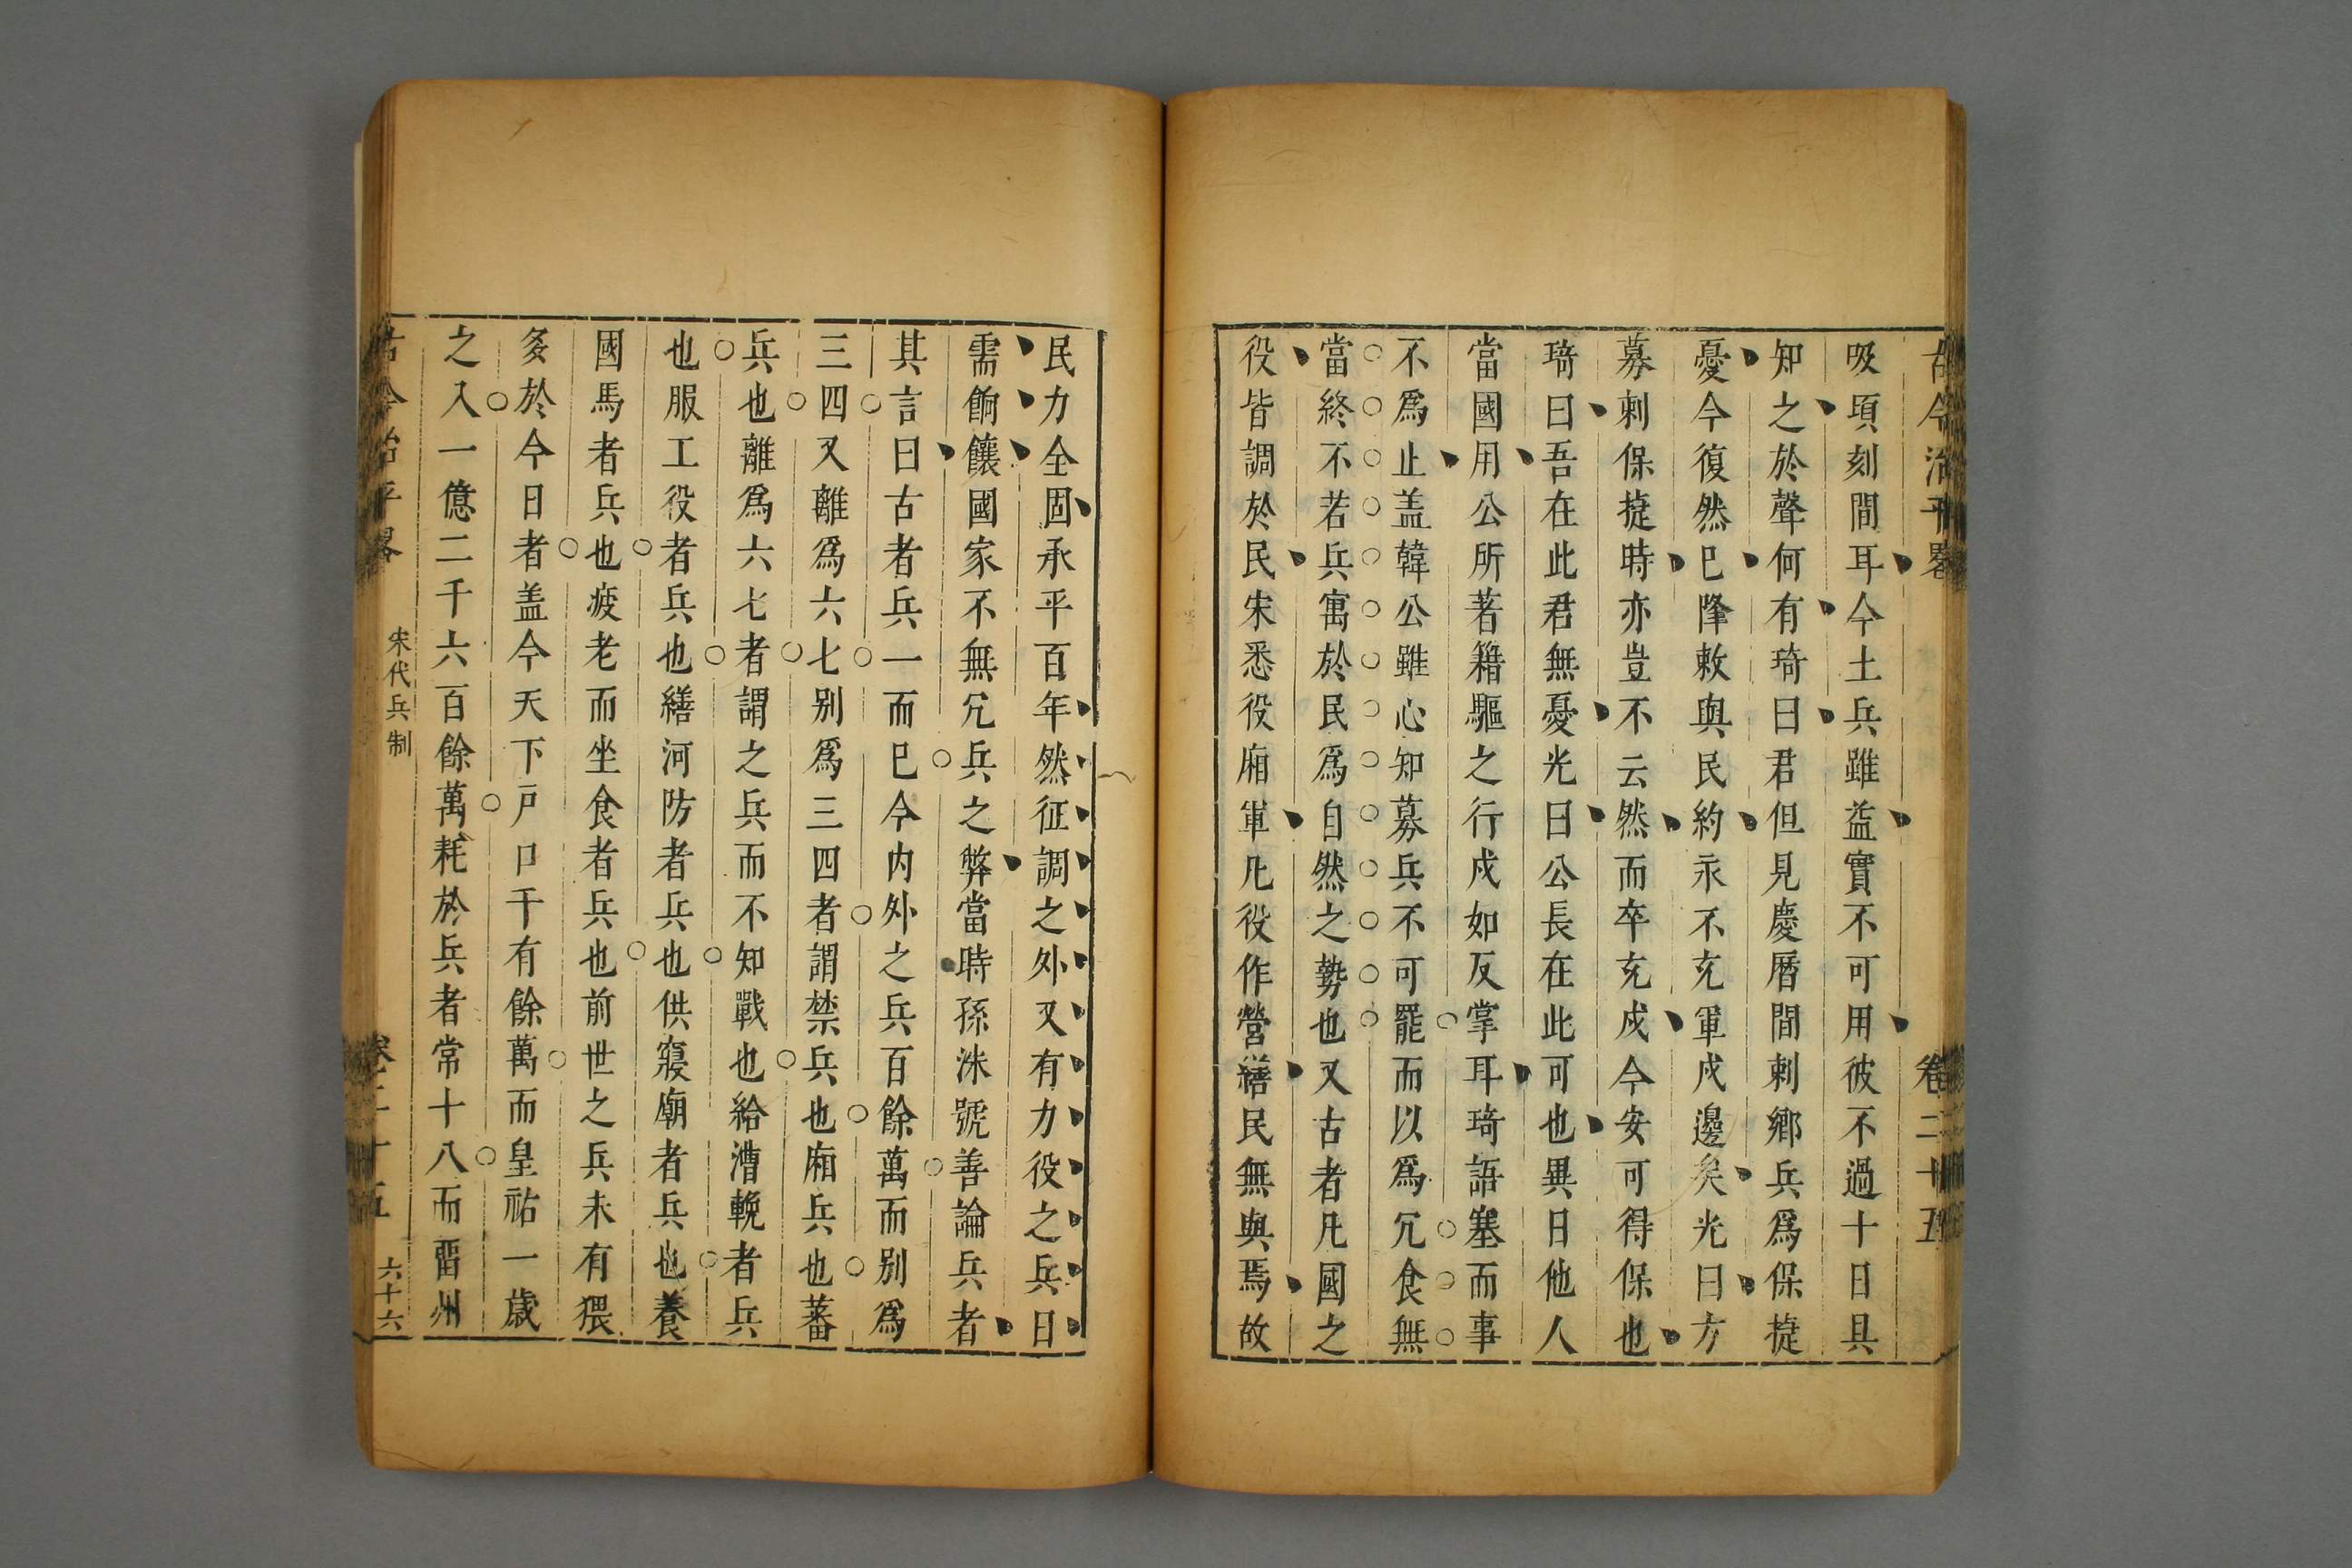 古今治平畧 卷二十五
吸頃刻間耳今土兵雖益實不可用彼不過十日具
知之於聲何有琦曰君但見慶曆間刺鄉兵爲保捷
憂今復然已降敕與民約永不充軍戍邊矣光曰方
募刺保捷時亦豈不云然而卒充戍今安可得保也
琦曰吾在此君無憂光曰公長在此可也異日他人
當國用公所著籍驅之行戍如反掌耳琦語塞而事
不爲止盖韓公雖心知募兵不可罷而以爲冗食無
當終不若兵寓於民爲自然之勢也又古者凡國之
役皆調於民宋悉役廂軍凡役作營繕民無與焉故
民力全固承平百年然征調之外又有力役之兵日
需餉饟國家不無冗兵之弊當時孫洙號善論兵者
其言曰古者兵一而已今内外之兵百餘萬而别爲
三四又離爲六七别爲三四者謂禁兵也廂兵也蕃
兵也離爲六七者謂之兵而不知戰也給漕輓者兵
也服工役者兵也繕河防者兵也供寢廟者兵也養
國馬者兵也疲老而坐食者兵也前世之兵未有猥
多於今日者盖今天下戸口千有餘萬而皇祐一歲
之入一億二千六百餘萬耗於兵者常十八而畱州
古今治平畧 宋代兵制 卷二十五 六十六